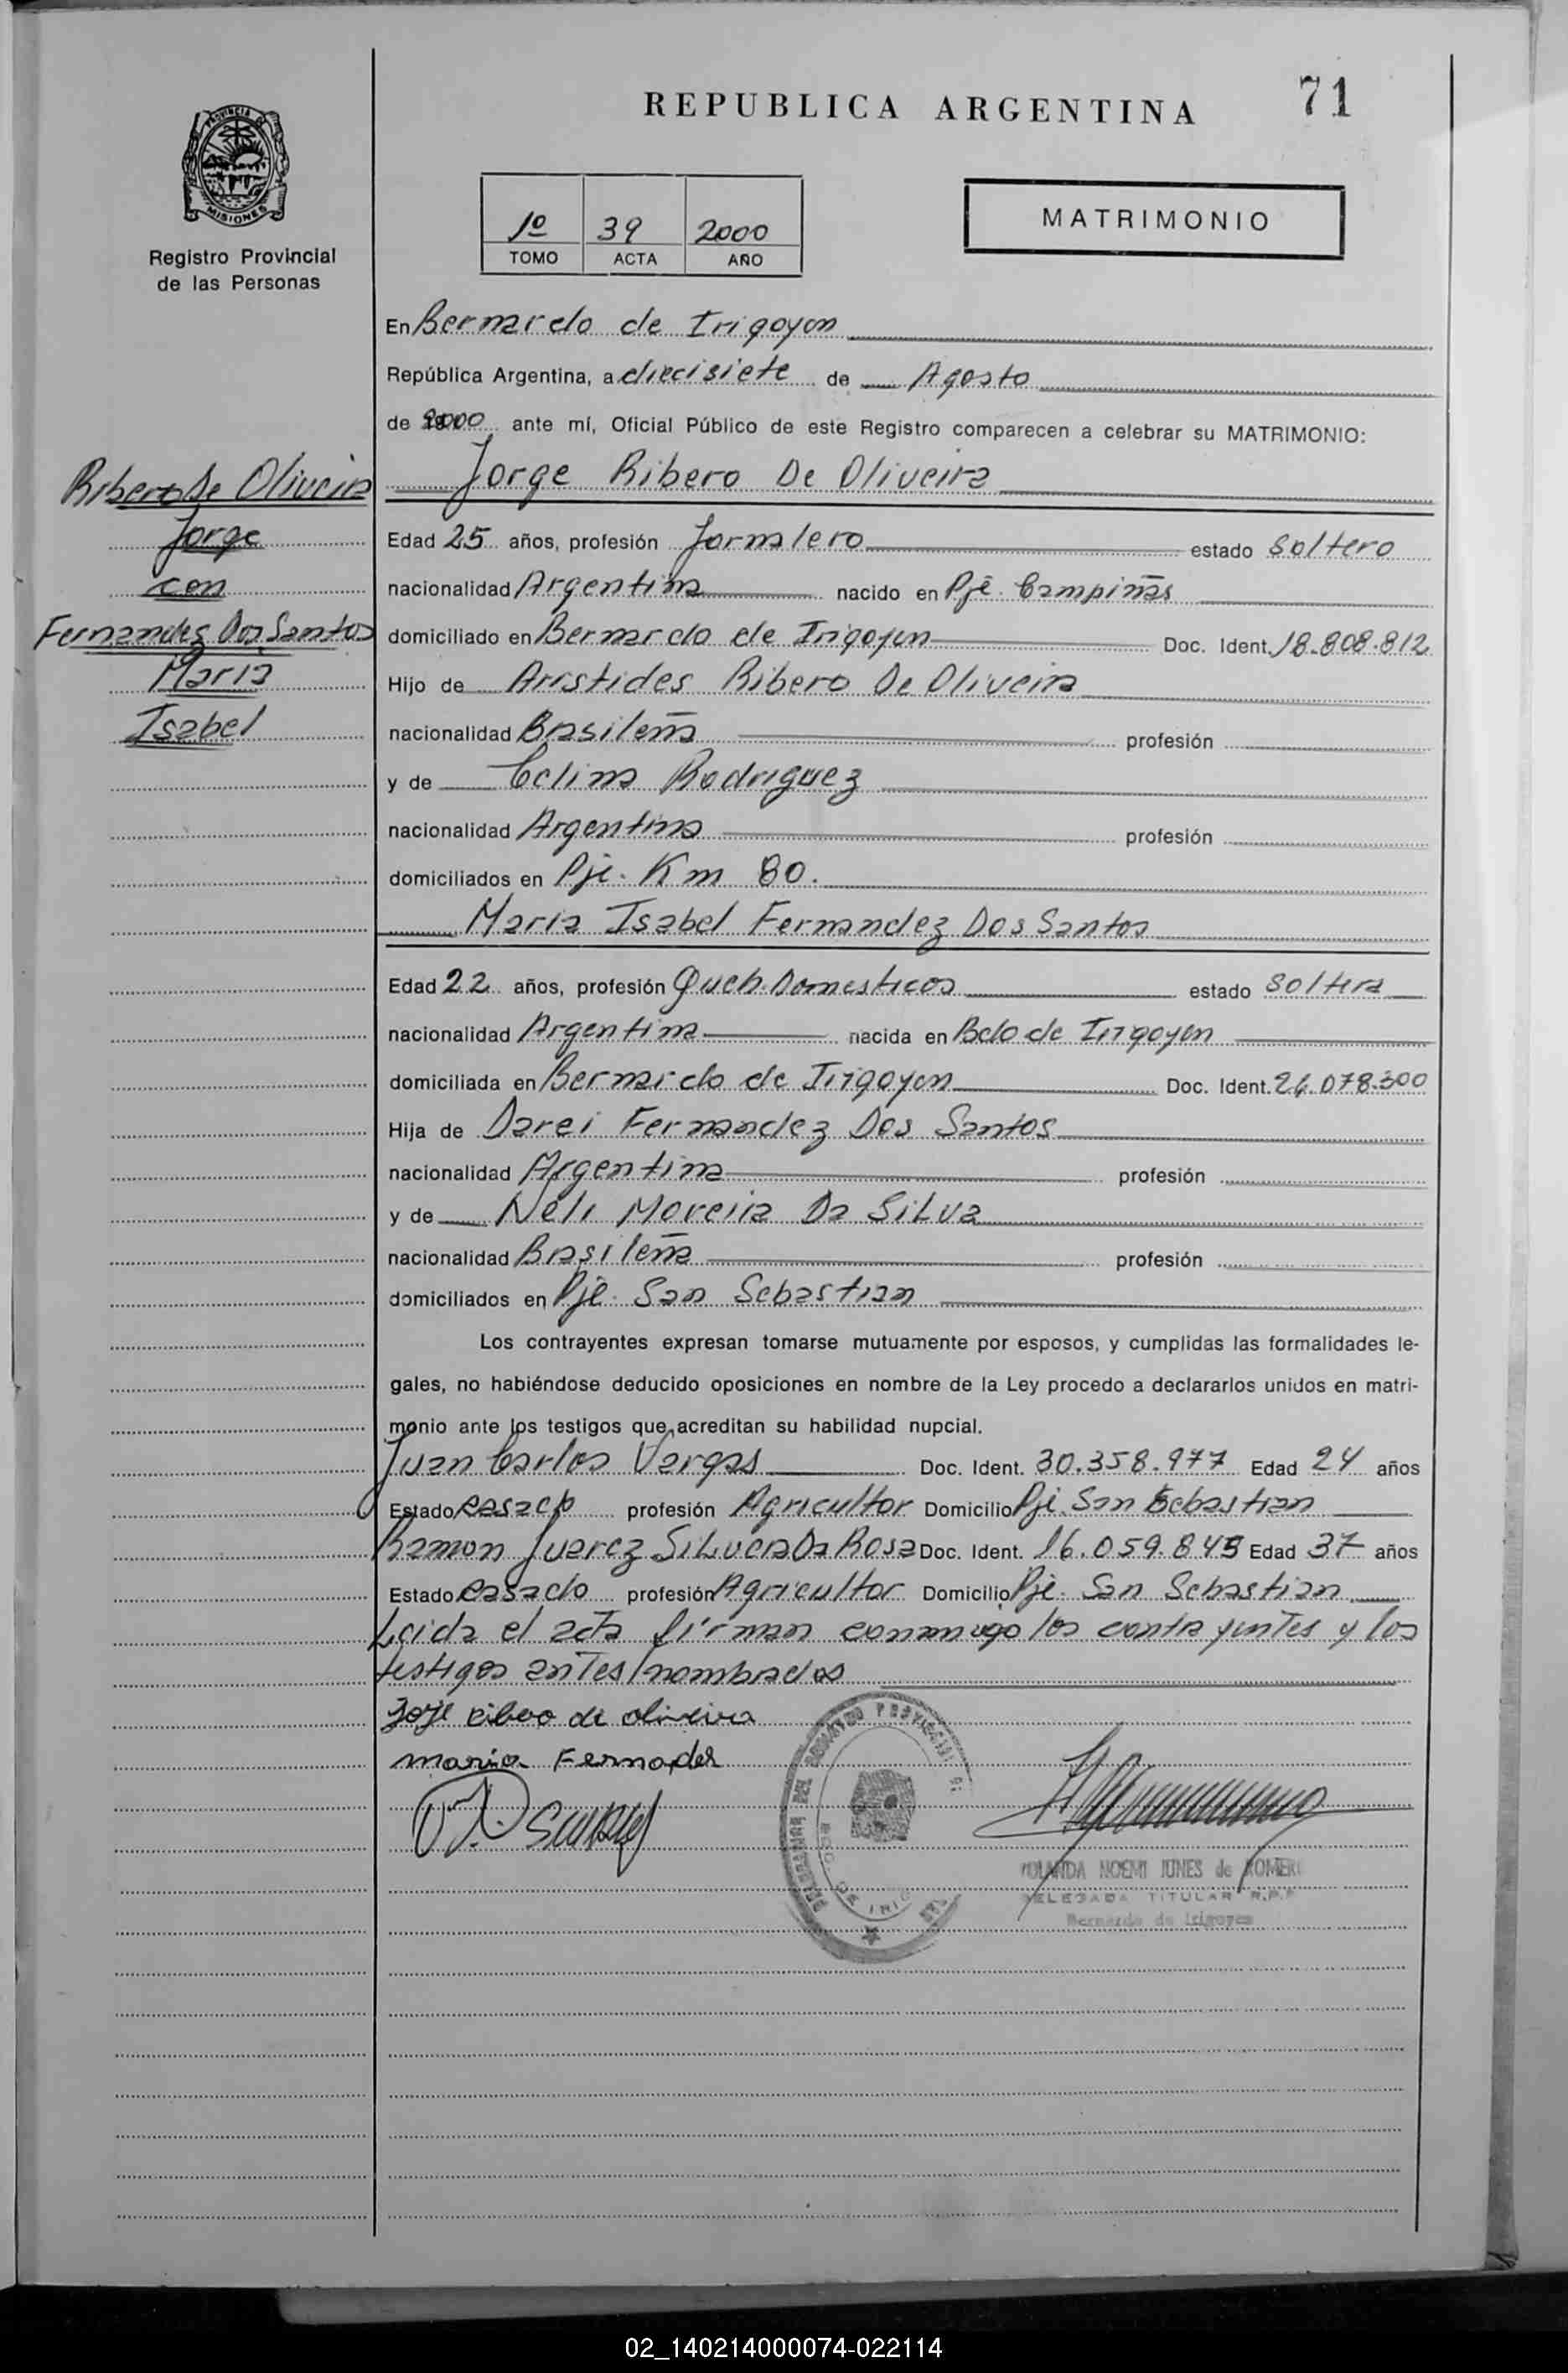 REPUBLICA ARGENTINA
71
PROVINCIA DE
MISIONES
Registro Provincial
de las Personas
1º 39 2000
TOMO ACTA AÑO
MATRIMONIO
En Bernardo de Irigoyen
República Argentina, a diecisiete de Agosto
de 2000 ante mí, Oficial Público de este Registro comparecen a celebrar su MATRIMONIO:
Ribero De Oliveira
Jorge
con
Fernandez Dos Santos
Maria
Isabel
Jorge Ribero De Oliveira
Edad 25 años, profesión Jornalero estado Soltero
nacionalidad Argentina nacido en Pje. Campiñas
domiciliado en Bernardo de Irigoyen Doc. Ident. 18.808.812
Hijo de Aristides Ribero De Oliveira
nacionalidad Brasileña profesión
y de Celina Rodriguez
nacionalidad Argentina profesión
domiciliados en Pje. Km 80.
Maria Isabel Fernandez Dos Santos
Edad 22 años, profesión Queh. Domesticos estado Soltera
nacionalidad Argentina nacida en Bdo de Irigoyen
domiciliada en Bernardo de Irigoyen Doc. Ident. 26.078.300
Hija de Darci Fernandez Dos Santos
nacionalidad Argentina profesión
y de Neli Moreira Da Silva
nacionalidad Brasileña profesión
domiciliados en Pje. San Sebastian
Los contrayentes expresan tomarse mutuamente por esposos, y cumplidas las formalidades le-
gales, no habiéndose deducido oposiciones en nombre de la Ley procedo a declararlos unidos en matri-
monio ante los testigos que acreditan su habilidad nupcial.
Juan Carlos Vargas Doc. Ident. 30.358.977 Edad 24 años
Estado casado profesión Agricultor Domicilio Pje. San Sebastian
Ramon Juarez Silveira Da Rosa Doc. Ident. 16.059.843 Edad 37 años
Estado casado profesión Agricultor Domicilio Pje. San Sebastian
Leida el acta firman conmigo los contrayentes y los
testigos antes nombrados
Joje ribeo de oliveira
maria Fernades
YOLANDA NOEMI JUNES de ROMERO
DELEGADA TITULAR R.P.P.
Bernardo de Irigoyen
02_140214000074-022114